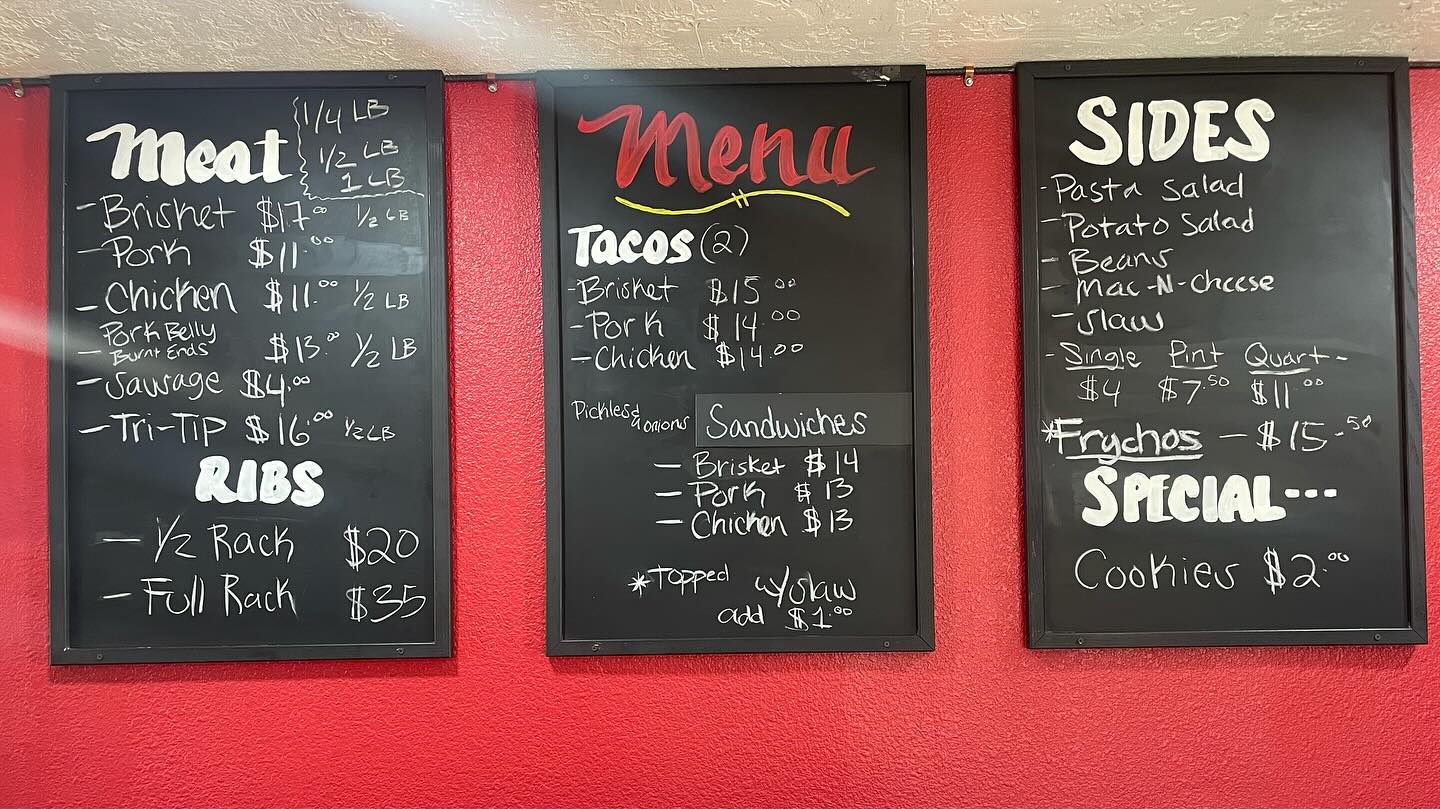 Meat
1/4 LB
1/2 LB
1 LB
- Brisket $17.00 1/2 LB
- Pork $11.00
- Chicken $11.00 1/2 LB
- Pork Belly Burnt Ends $13.00 1/2 LB
- Sausage $4.00
- Tri-Tip $16.00 1/2 LB
RIBS
- 1/2 Rack $20
- Full Rack $35
Menu
Tacos (2)
- Brisket $15.00
- Pork $14.00
- Chicken $14.00
Pickles & onions Sandwiches
- Brisket $14
- Pork $13
- Chicken $13
*Topped w/slaw
add $1.00
SIDES
- Pasta Salad
- Potato Salad
- Beans
- Mac-N-Cheese
- Slaw
- Single Pint Quart -
$4 $7.50 $11.00
*Frychos - $15.50
SPECIAL...
Cookies $2.00